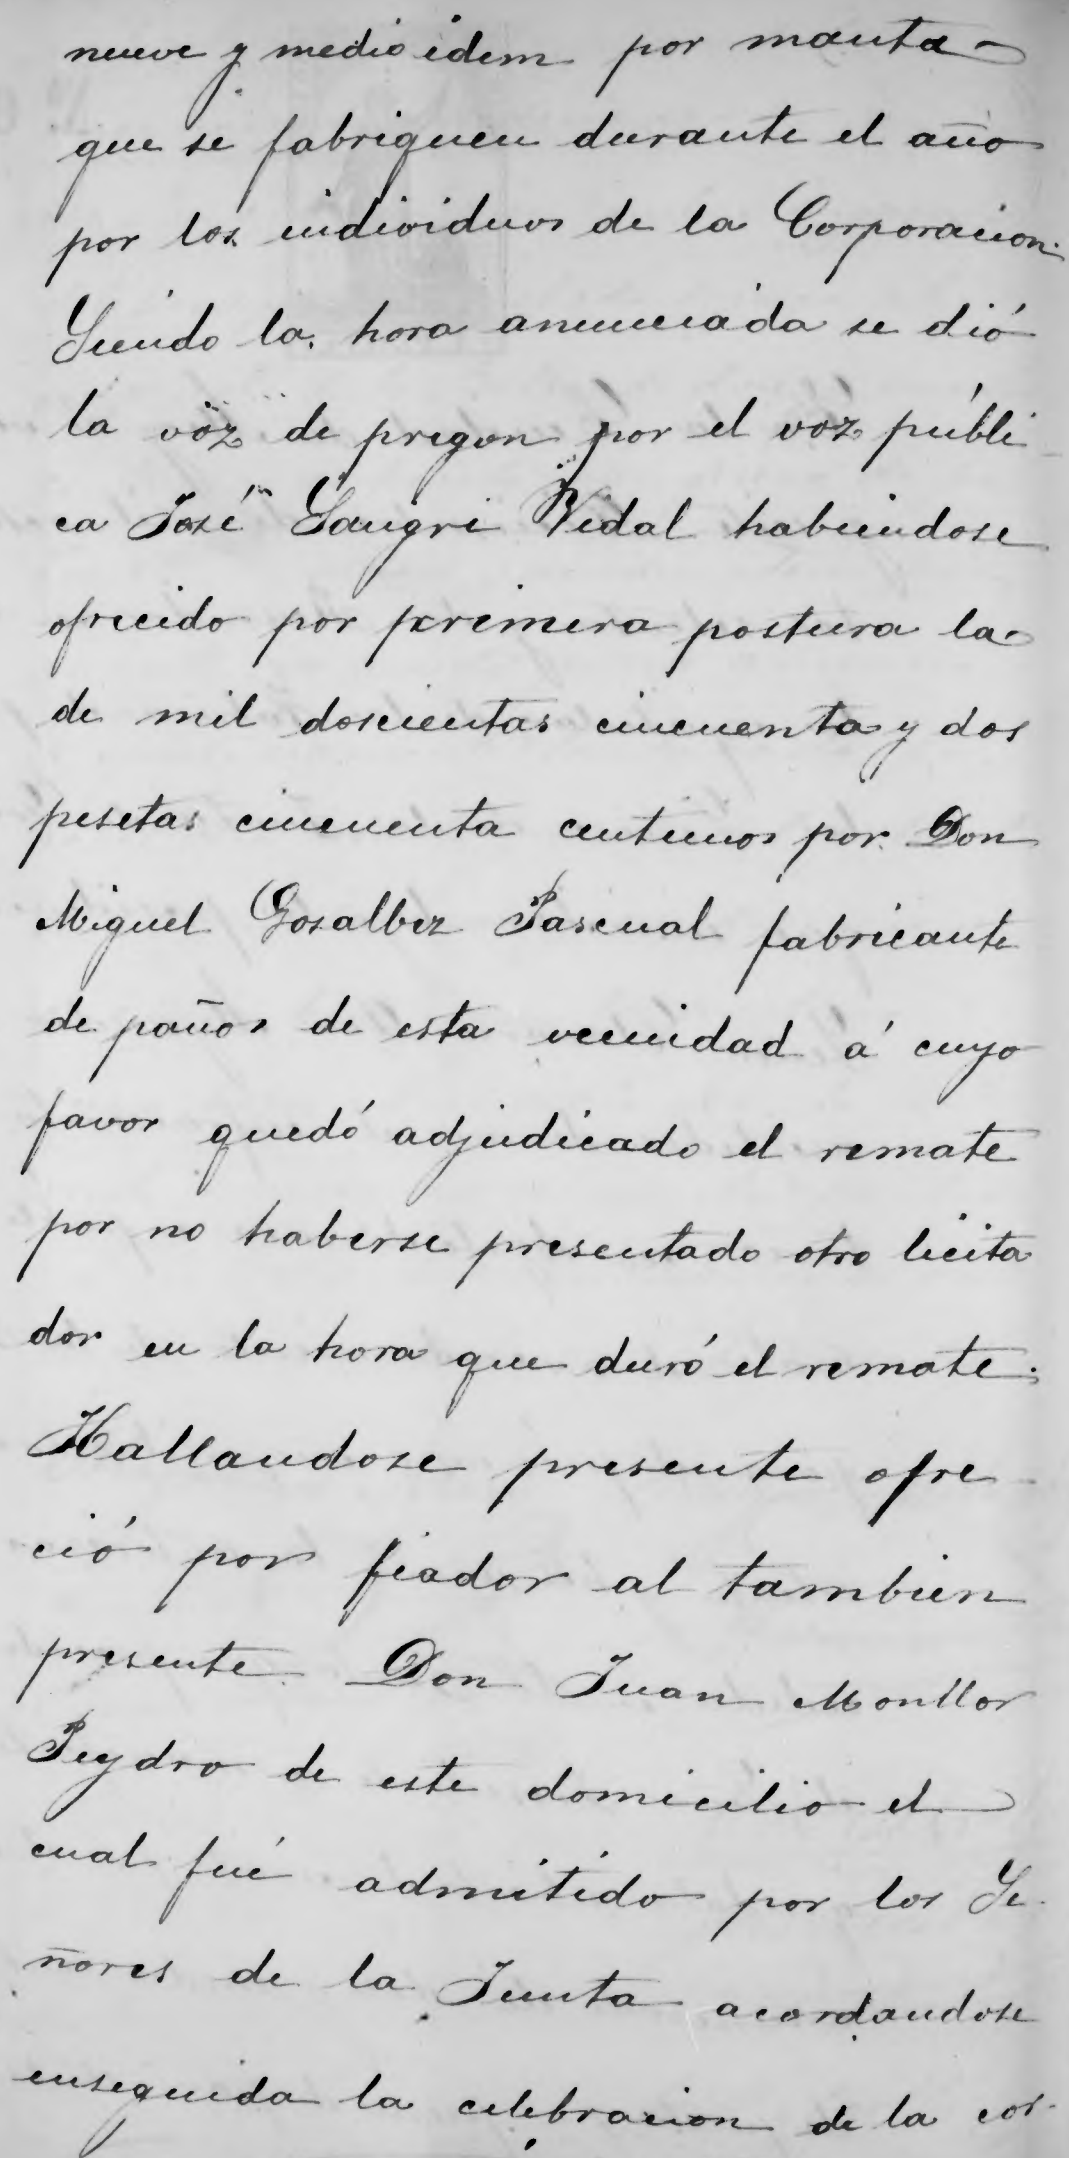 nueve y medio idem por manta
que se fabriquen durante el año
por los individuos de la Corporacion.
Siendo la hora anunciada se dió
la voz de pregon por el voz públi
ca José Sangri Vidal habiendose
ofrecido por primera postura la
de mil doscientas cincuenta y dos
pesetas cincuenta centimos por Don
Miguel Gosalbez Pascual fabricante
de paños de esta vecindad á cuyo
favor quedó adjudicado el remate
por no haberse presentado otro licita
dor en la hora que duró el remate.
Hallandose presente ofre
ció por fiador al tambien
presente Don Juan Monllor
Peydro de este domicilio el
cual fué admitido por los Se
ñores de la Junta acordandose
enseguida la celebracion de la cor